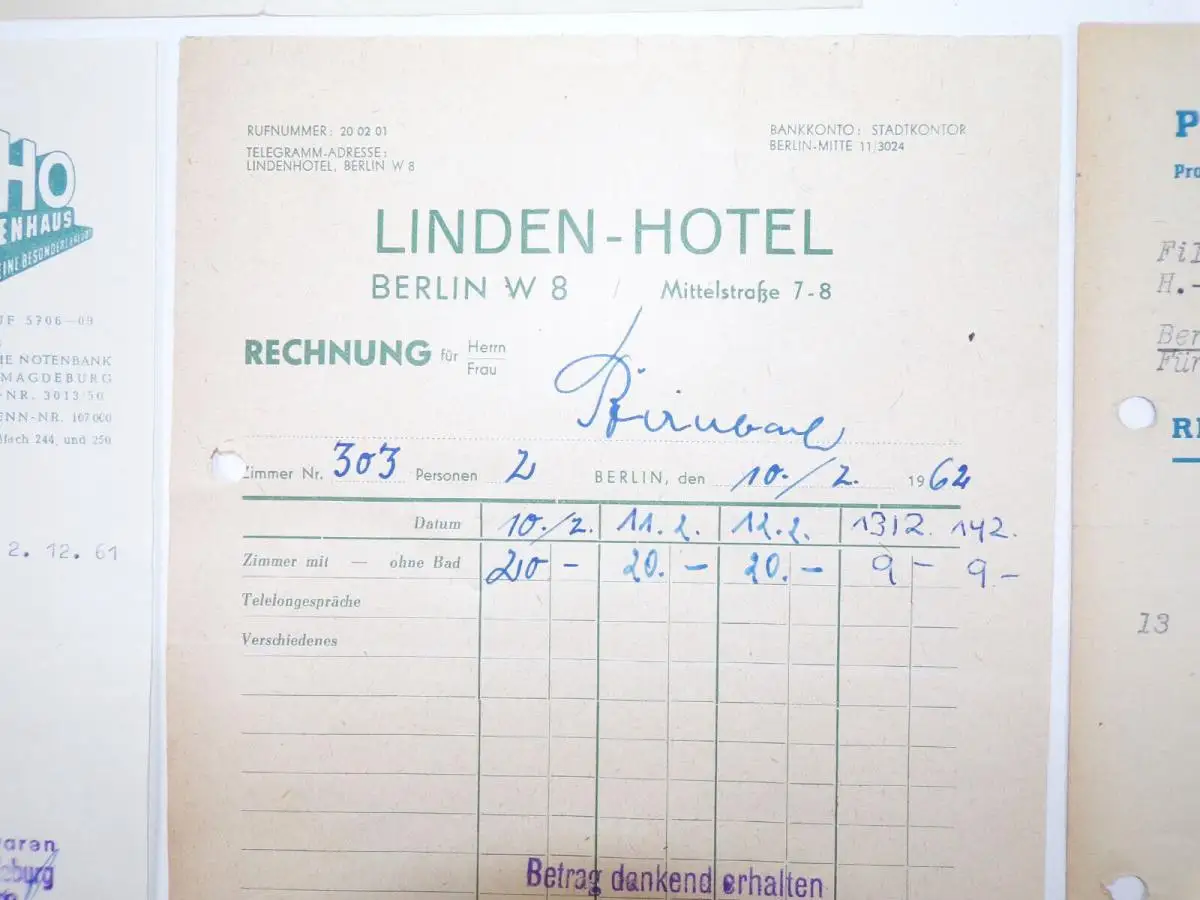 HO
ENHAUS
EINE BESONDERE
UF 5706—09
HE NOTENBANK
MAGDEBURG
-NR. 3013/50
ENN-NR. 107 000
ßfach 244, und 250
2. 12. 61
waren
deburg
RUFNUMMER: 20 02 01
TELEGRAMM-ADRESSE:
LINDENHOTEL, BERLIN W 8
BANKKONTO: STADTKONTOR
BERLIN-MITTE 11/3024
LINDEN-HOTEL
BERLIN W 8 / Mittelstraße 7-8
RECHNUNG für Herrn
Frau
Birnbaul
Zimmer Nr. 303 Personen 2 BERLIN, den 10./2. 1962
Datum 10./2. 11.2. 12.2. 13/2. 142.
Zimmer mit — ohne Bad 20 - 20. - 20. - 9 - 9.-
Telelongespräche
Verschiedenes
Betrag dankend erhalten
P
Pro
Fil
H.-
Ber
Für
RE
13